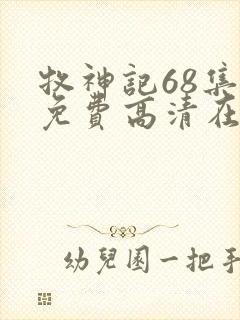 牧神記68集
免費高清在
幼兒園一把手